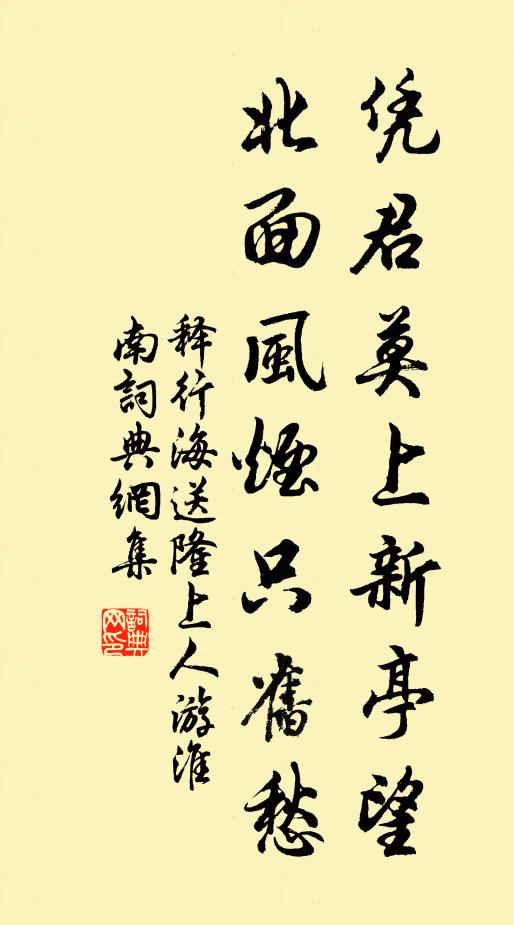 凭君莫上新亭望
北面風煙只舊愁
释行海送隆上人游淮
南詞典網集
詞典
网印